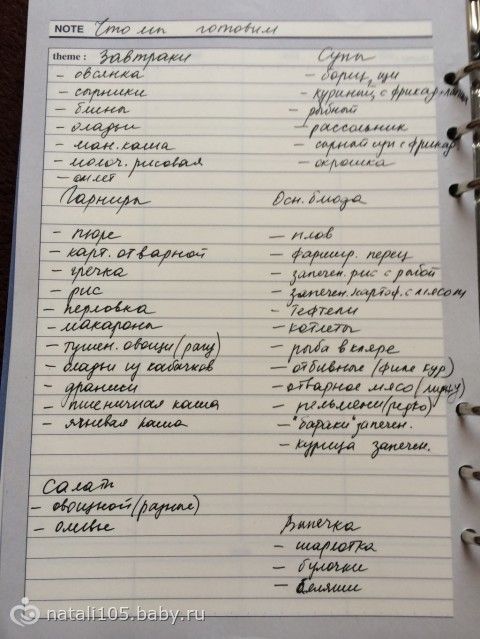 NOTE Что мы готовим
theme : Завтраки
- овсянка
- сырники
- блины
- оладьи
- ман. каша
- молоч. рисовая
- омлет
Супы
- борщ, щи
- куриный с фрикад
- рыбный
- рассольник
- суп с фрикад.
- окрошка
Гарниры
- пюре
- карт. отварной
- гречка
- рис
- перловка
- макароны
- тушен. овощи (рагу)
- оладьи из кабачков
- драники
- пшеничная каша
- ячневая каша
Осн. блюда
- плов
- фаршир. перец
- запечен. рис с рыбой
- запечен. картоф. с мясом
- тефтели
- котлеты
- рыба в кляре
- отбивные (филе кур)
- отварное мясо
- пельмени (редко)
- запечен.
- курица запечен.
Салаты
- овощной (разные)
- оливье
Выпечка
- шарлотка
- булочки
- беляши
natali105.baby.ru